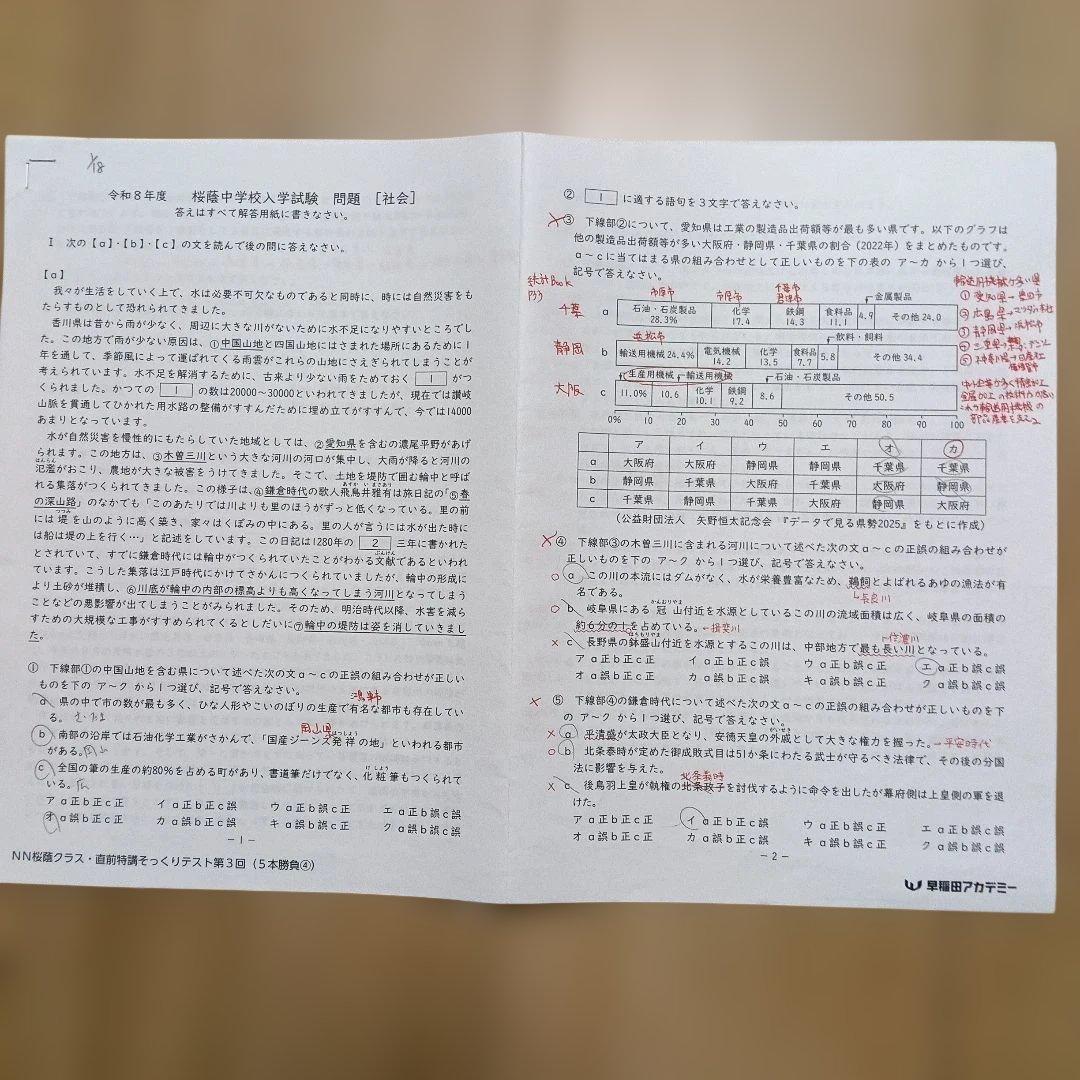 1/18
令和8年度 桜蔭中学校入学試験 問題 [社会]
答えはすべて解答用紙に書きなさい。
Ⅰ 次の【a】・【b】・【c】の文を読んで後の問に答えなさい。
【a】
我々が生活をしていく上で、水は必要不可欠なものであると同時に、時には自然災害をも
たらすものとして恐れられてきました。
香川県は昔から雨が少なく、周辺に大きな川がないために水不足になりやすいところでし
た。この地方で雨が少ない原因は、①中国山地と四国山地にはさまれた場所にあるために1
年を通して、季節風によって運ばれてくる雨雲がこれらの山地にさえぎられてしまうことが
考えられています。水不足を解消するために、古来より少ない雨をためておく 1 がつ
くられました。かつての 1 の数は20000～30000といわれてきましたが、現在では讃岐
山脈を貫通してひかれた用水路の整備がすすんだために埋め立てがすすんで、今では14000
あまりとなっています。
水が自然災害を慢性的にもたらしていた地域としては、②愛知県を含む濃尾平野があげ
られます。この地方は、③木曽三川という大きな河川の河口が集中し、大雨が降ると河川の
氾濫がおこり、農地が大きな被害をうけてきました。そこで、土地を堤防で囲む輪中と呼ば
はんらん
れる集落がつくられてきました。この様子は、④鎌倉時代の歌人飛鳥井雅有は旅日記の「⑤春
あすか い まさあり
の深山路」のなかでも「このあたりでは川よりも里のほうがずっと低くなっている。里の前
には堤を山のように高く築き、家々はくぼみの中にある。里の人が言うには水が出た時に
つつみ
は船は堤の上を行く…」と記述をしています。この日記は1280年の 2 三年に書かれた
とされていて、すでに鎌倉時代には輪中がつくられていたことがわかる文献であるといわれ
ぶんけん
ています。こうした集落は江戸時代にかけてさかんにつくられていましたが、輪中の形成に
より土砂が堆積し、⑥川底が輪中の内部の標高よりも高くなってしまう河川となってしまう
ことなどの悪影響が出てしまうことがみられました。そのため、明治時代以降、水害を減ら
すための大規模な工事がすすめられてくるとしだいに⑦輪中の堤防は姿を消していきまし
た。
① 下線部①の中国山地を含む県について述べた次の文a～cの正誤の組み合わせが正しい
ものを下の ア～ク から1つ選び、記号で答えなさい。
a 県の中で市の数が最も多く、ひな人形やこいのぼりの生産で有名な都市も存在してい
鴻巣市
る。 さいたま
岡山県
b 南部の沿岸では石油化学工業がさかんで、「国産ジーンズ発祥の地」といわれる都市
はっしょう
がある。 岡山
c 全国の筆の生産の約80%を占める町があり、書道筆だけでなく、化粧筆もつくられて
け しょう
いる。 広
ア a正b正c正 イ a正b正c誤 ウ a正b誤c正 エ a正b誤c誤
オ a誤b正c正 カ a誤b正c誤 キ a誤b誤c正 ク a誤b誤c誤
－1－
NN桜蔭クラス・直前特講そっくりテスト第3回(5本勝負④)
② 1 に適する語句を3文字で答えなさい。
③ 下線部②について、愛知県は工業の製造品出荷額等が最も多い県です。以下のグラフは
他の製造品出荷額等が多い大阪府・静岡県・千葉県の割合(2022年)をまとめたものです。
a～cに当てはまる県の組み合わせとして正しいものを下の表の ア～カ から1つ選び、
記号で答えなさい。
統計Book
P33
市原市 市原市 千葉市 君津市
金属製品
千葉 a 石油・石炭製品 28.3% 化学 17.4 鉄鋼 14.3 食料品 11.1 4.9 その他 24.0
浜松市
飲料・飼料
静岡 b 輸送用機械 24.4% 電気機械 14.2 化学 13.5 食料品 7.7 5.8 その他 34.4
生産用機械 輸送用機械 石油・石炭製品
大阪 c 11.0% 10.6 化学 10.1 鉄鋼 9.2 8.6 その他 50.5
0% 10 20 30 40 50 60 70 80 90 100
輸送用機械が多い県
① 愛知県→豊田市
② 広島県→マツダ本社
③ 静岡県→浜松市
⑤ 神奈川県→日産社
横須賀市
ア イ ウ エ オ カ
a 大阪府 大阪府 静岡県 静岡県 千葉県 千葉県
b 静岡県 千葉県 大阪府 千葉県 大阪府 静岡県
c 千葉県 静岡県 千葉県 大阪府 静岡県 大阪府
(公益財団法人 矢野恒太記念会 『データで見る県勢2025』をもとに作成)
④ 下線部③の木曽三川に含まれる河川について述べた次の文a～cの正誤の組み合わせが
正しいものを下の ア～ク から1つ選び、記号で答えなさい。
a この川の本流にはダムがなく、水が栄養豊富なため、鵜飼とよばれるあゆの漁法が有
名である。 長良川
かんむりやま
b 岐阜県にある冠山付近を水源としているこの川の流域面積は広く、岐阜県の面積の
約6分の1を占めている。 ←揖斐川
はちもりやま
信濃川
c 長野県の鉢盛山付近を水源とするこの川は、中部地方で最も長い川となっている。
ア a正b正c正 イ a正b正c誤 ウ a正b誤c正 エ a正b誤c誤
オ a誤b正c正 カ a誤b正c誤 キ a誤b誤c正 ク a誤b誤c誤
⑤ 下線部④の鎌倉時代について述べた次の文a～cの正誤の組み合わせが正しいものを下
の ア～ク から1つ選び、記号で答えなさい。
がいせき
a 平清盛が太政大臣となり、安徳天皇の外戚として大きな権力を握った。 →平安時代
b 北条泰時が定めた御成敗式目は51か条にわたる武士が守るべき法律で、その後の分国
法に影響を与えた。
北条義時
c 後鳥羽上皇が執権の北条政子を討伐するように命令を出したが幕府側は上皇側の軍を退
けた。
ア a正b正c正 イ a正b正c誤 ウ a正b誤c正 エ a正b誤c誤
オ a誤b正c正 カ a誤b正c誤 キ a誤b誤c正 ク a誤b誤c誤
－2－
早稲田アカデミー